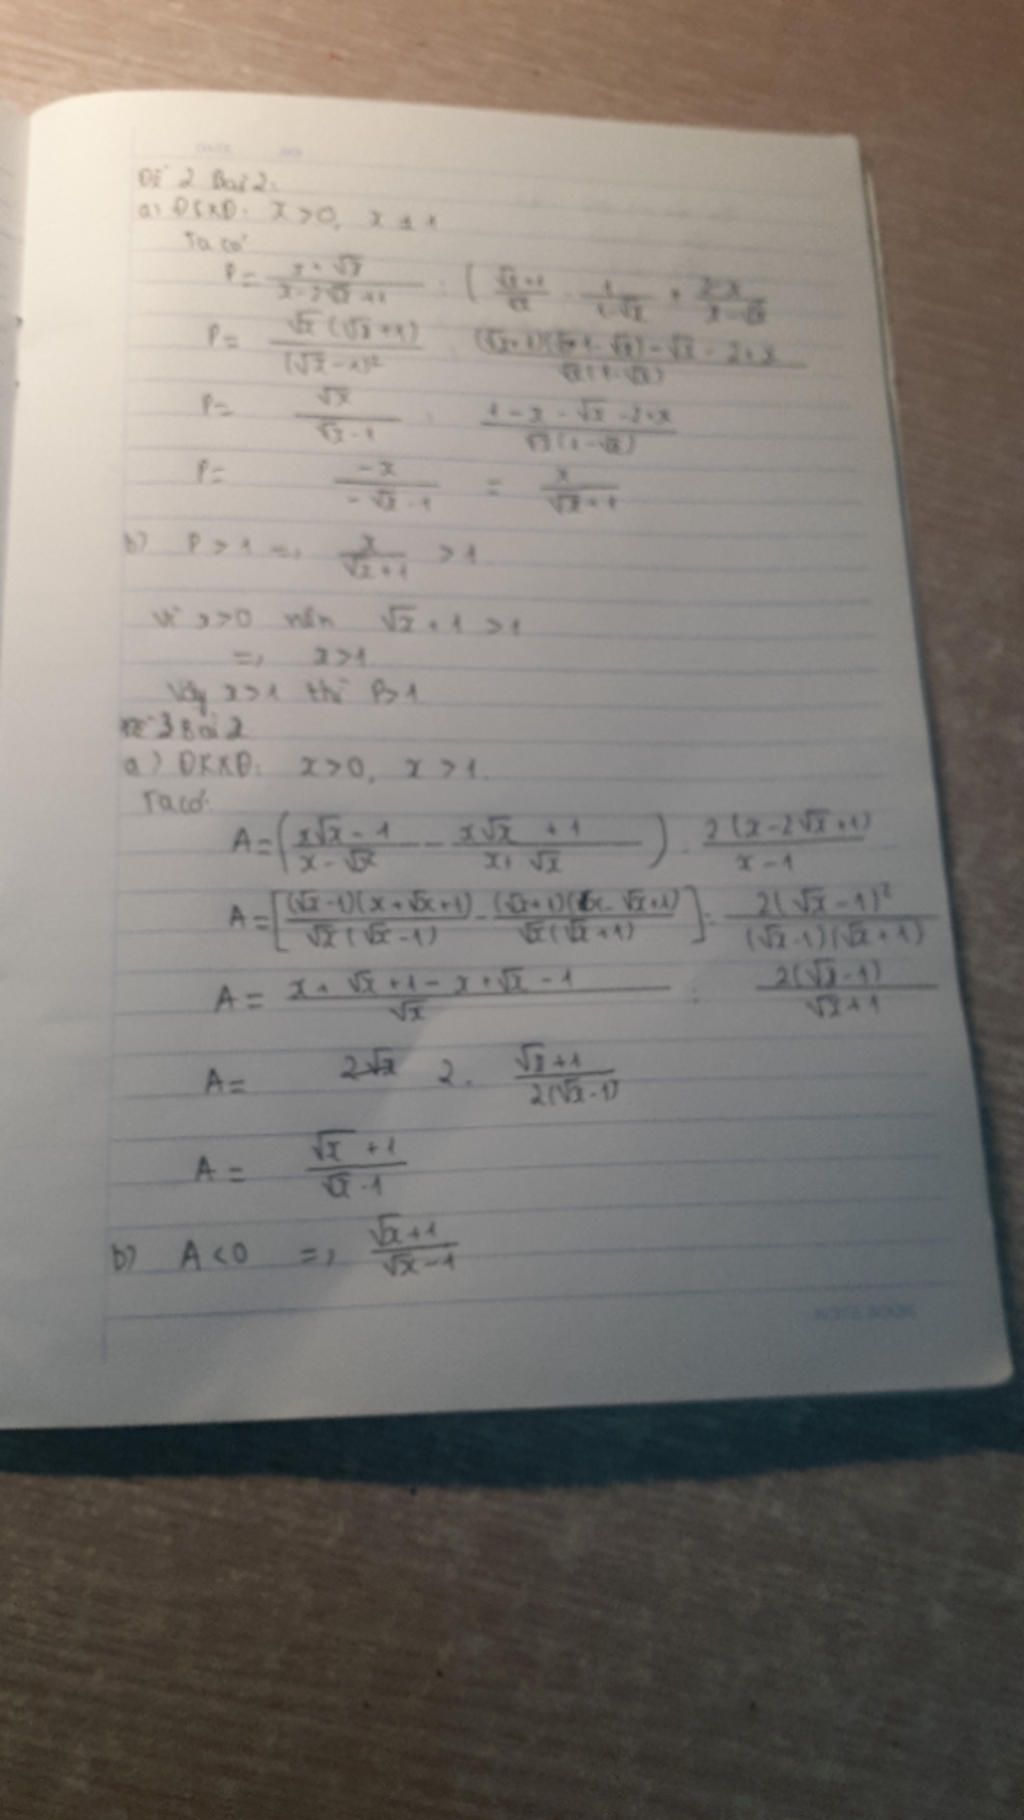 Đề 2 Bài 2:
a) ĐKXĐ: x > 0, x ≠ 1
Ta có
P = x + √x / x - 2√x + 1 : ( √x + 1 / √x - 1 / 1 - √x + 2 - x / x - √x
P = √x (√x + 1) / (√x - 1)² : (√x + 1)(1 - √x) - √x - 2 + x / √x (1 - √x)
P = √x / √x - 1 : 1 - x - √x - 2 + x / √x (1 - √x)
P = -x / -√x - 1 = x / √x + 1
b) P > 1 => x / √x + 1 > 1
Vì x > 0 nên √x + 1 > 1
=> x > 1
Vậy x > 1 thì P > 1
Đề 3 Bài 2
a) ĐKXĐ: x > 0, x > 1.
Ta có:
A = ( x√x - 1 / x - √x - x√x + 1 / x + √x ) : 2(x - 2√x + 1) / x - 1
A = [ (√x - 1)(x + √x + 1) / √x (√x - 1) - (√x + 1)(x - √x + 1) / √x (√x + 1) ] : 2(√x - 1)² / (√x - 1)(√x + 1)
A = x + √x + 1 - x + √x - 1 / √x : 2(√x - 1) / √x + 1
A = 2 . √x + 1 / 2(√x - 1)
A = √x + 1 / √x - 1
b) A < 0 => √x + 1 / √x - 1
NOTE BOOK